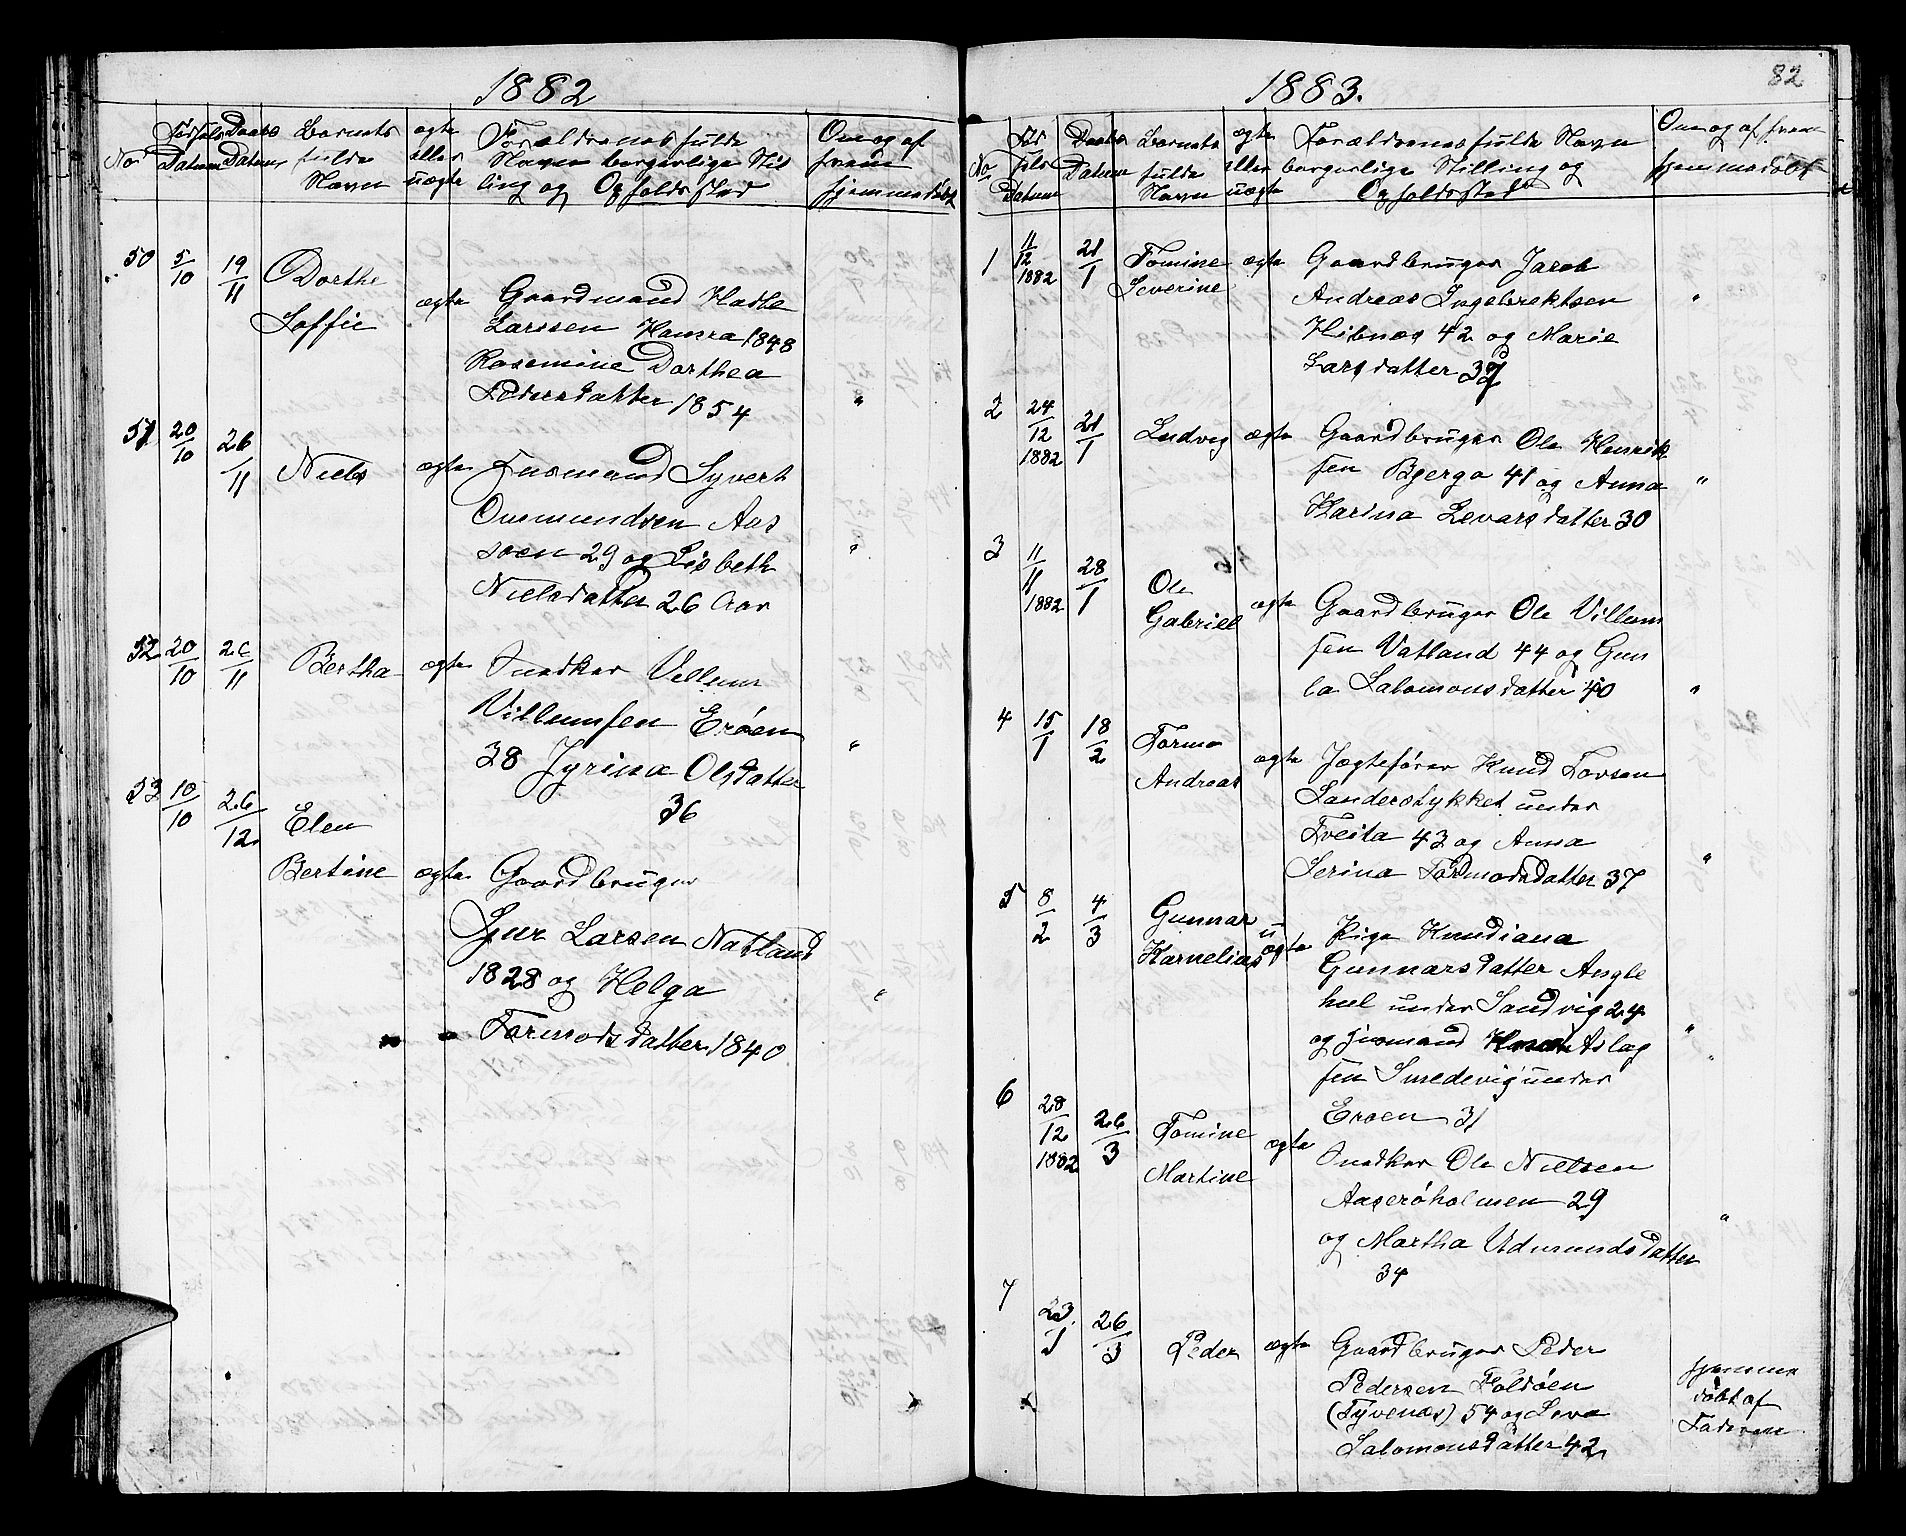 1882
No
Fødsels Datum
Daabs Datum
Barnets fulde Navn
ægte eller uægte
Forældrenes fulde Navn borgerlige Stilling og Opholdssted
Om og af hvem hjemmedøbt
50
5/10
19/11
Dorthe
Soffie
ægte
Gaardmand
Larssen Hamra 1848
Rasmine Dorthea
Pedersdatter 1854
"
51
20/10
26/11
Niels
ægte
Huusmand Syvert
Ommundsen Aas
29 og Lisbeth
Nielsdatter 26 Aar
"
52
20/10
26/11
Bertha
ægte
Snedker Vellum
Villumsen Erøen
38 Jyrina Olsdatter
36
"
53
10/10
26/12
Elen
Bertine
ægte
Gaardbruger
Sjur Larsen Natland
1828 og Helga
Tormodsdatter 1840
"
1883.
82
No
Fødsels Datum
Daabs Datum
Barnets fulde Navn
ægte eller uægte
Forældrenes fulde Navn
borgerlige Stilling og
Opholdssted
Om og af hvem
hjemmedøbt
1
11/12 1882
21/1
Tomine
Severine
ægte
Gaardbruger Jacob
Andreas Ingebrektsen
Hibnes 42 og Marie
Larsdatter
"
2
24/12 1882
21/1
Ludvig
ægte
Gaardbruger Ole Henrik
sen Bjerga 41 og Anna
Karina Levarsdatter 30
"
3
11/11 1882
28/1
Ole
Gabriel
ægte
Gaardbruger Ole Villum
sen Vatland 44 og Gun
la Salomonsdatter 40
"
4
15/1
18/2
Tormo
Andreas
ægte
Jægtefører Knud Tovsen
Sanderstykket under
Tveita 43 og Anna
Serina Tormodsdatter 37
"
5
8/2
4/3
Gunnar
Karnelius
u
ægte
Pige Knudiana
Gunnarsdatter Angle
hul under Sandvig 24
og Aslag
sen Smedevig under
Erøen 31
"
6
28/12 1882
26/3
Tomine
Martine
ægte
Snedker Ole Nielsen
Aaserøholmen 29
og Martha Udmundsdatter
34
"
7
23/1
26/3
Peder
ægte
Gaardbruger Peder
Pedersen Foldøen
(Tyvenæs) 54 og Leva
Salomonsdatter 42
hjemme
døbt af
Faderen